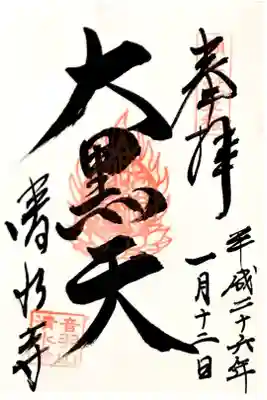 奉拝
平成二十六年
一月十二日
大黒天
清水寺
音羽
清水